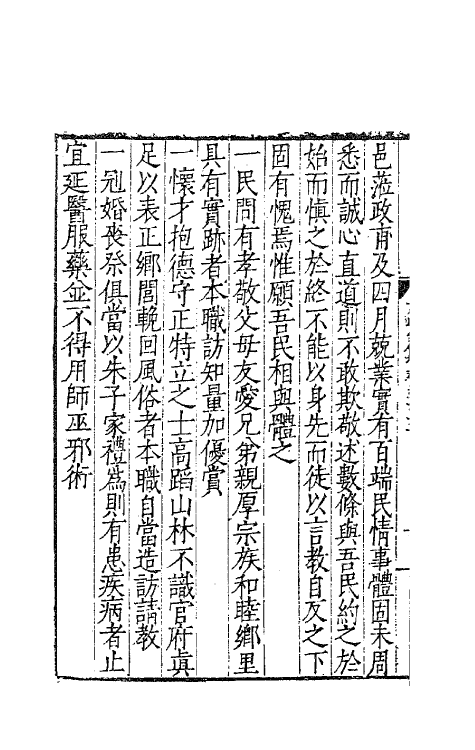 邑蒞政甫及四月兢業實有百端民情事體固未周
悉而誠心直道則不敢欺敬述數條與吾民約之於
始而慎之於終不能以身先而徒以言教自反之下
固有愧焉惟願吾民相與體之
一民間有孝敬父母友愛兄弟親厚宗族和睦鄉里
具有實跡者本職訪知量加優賞
一懷才抱德守正特立之士高蹈山林不識官府真
足以表正鄉閭輓回風俗者本職自當造訪請教
一冠婚喪祭俱當以朱子家禮為則有患疾病者止
宜延醫服藥並不得用師巫邪術